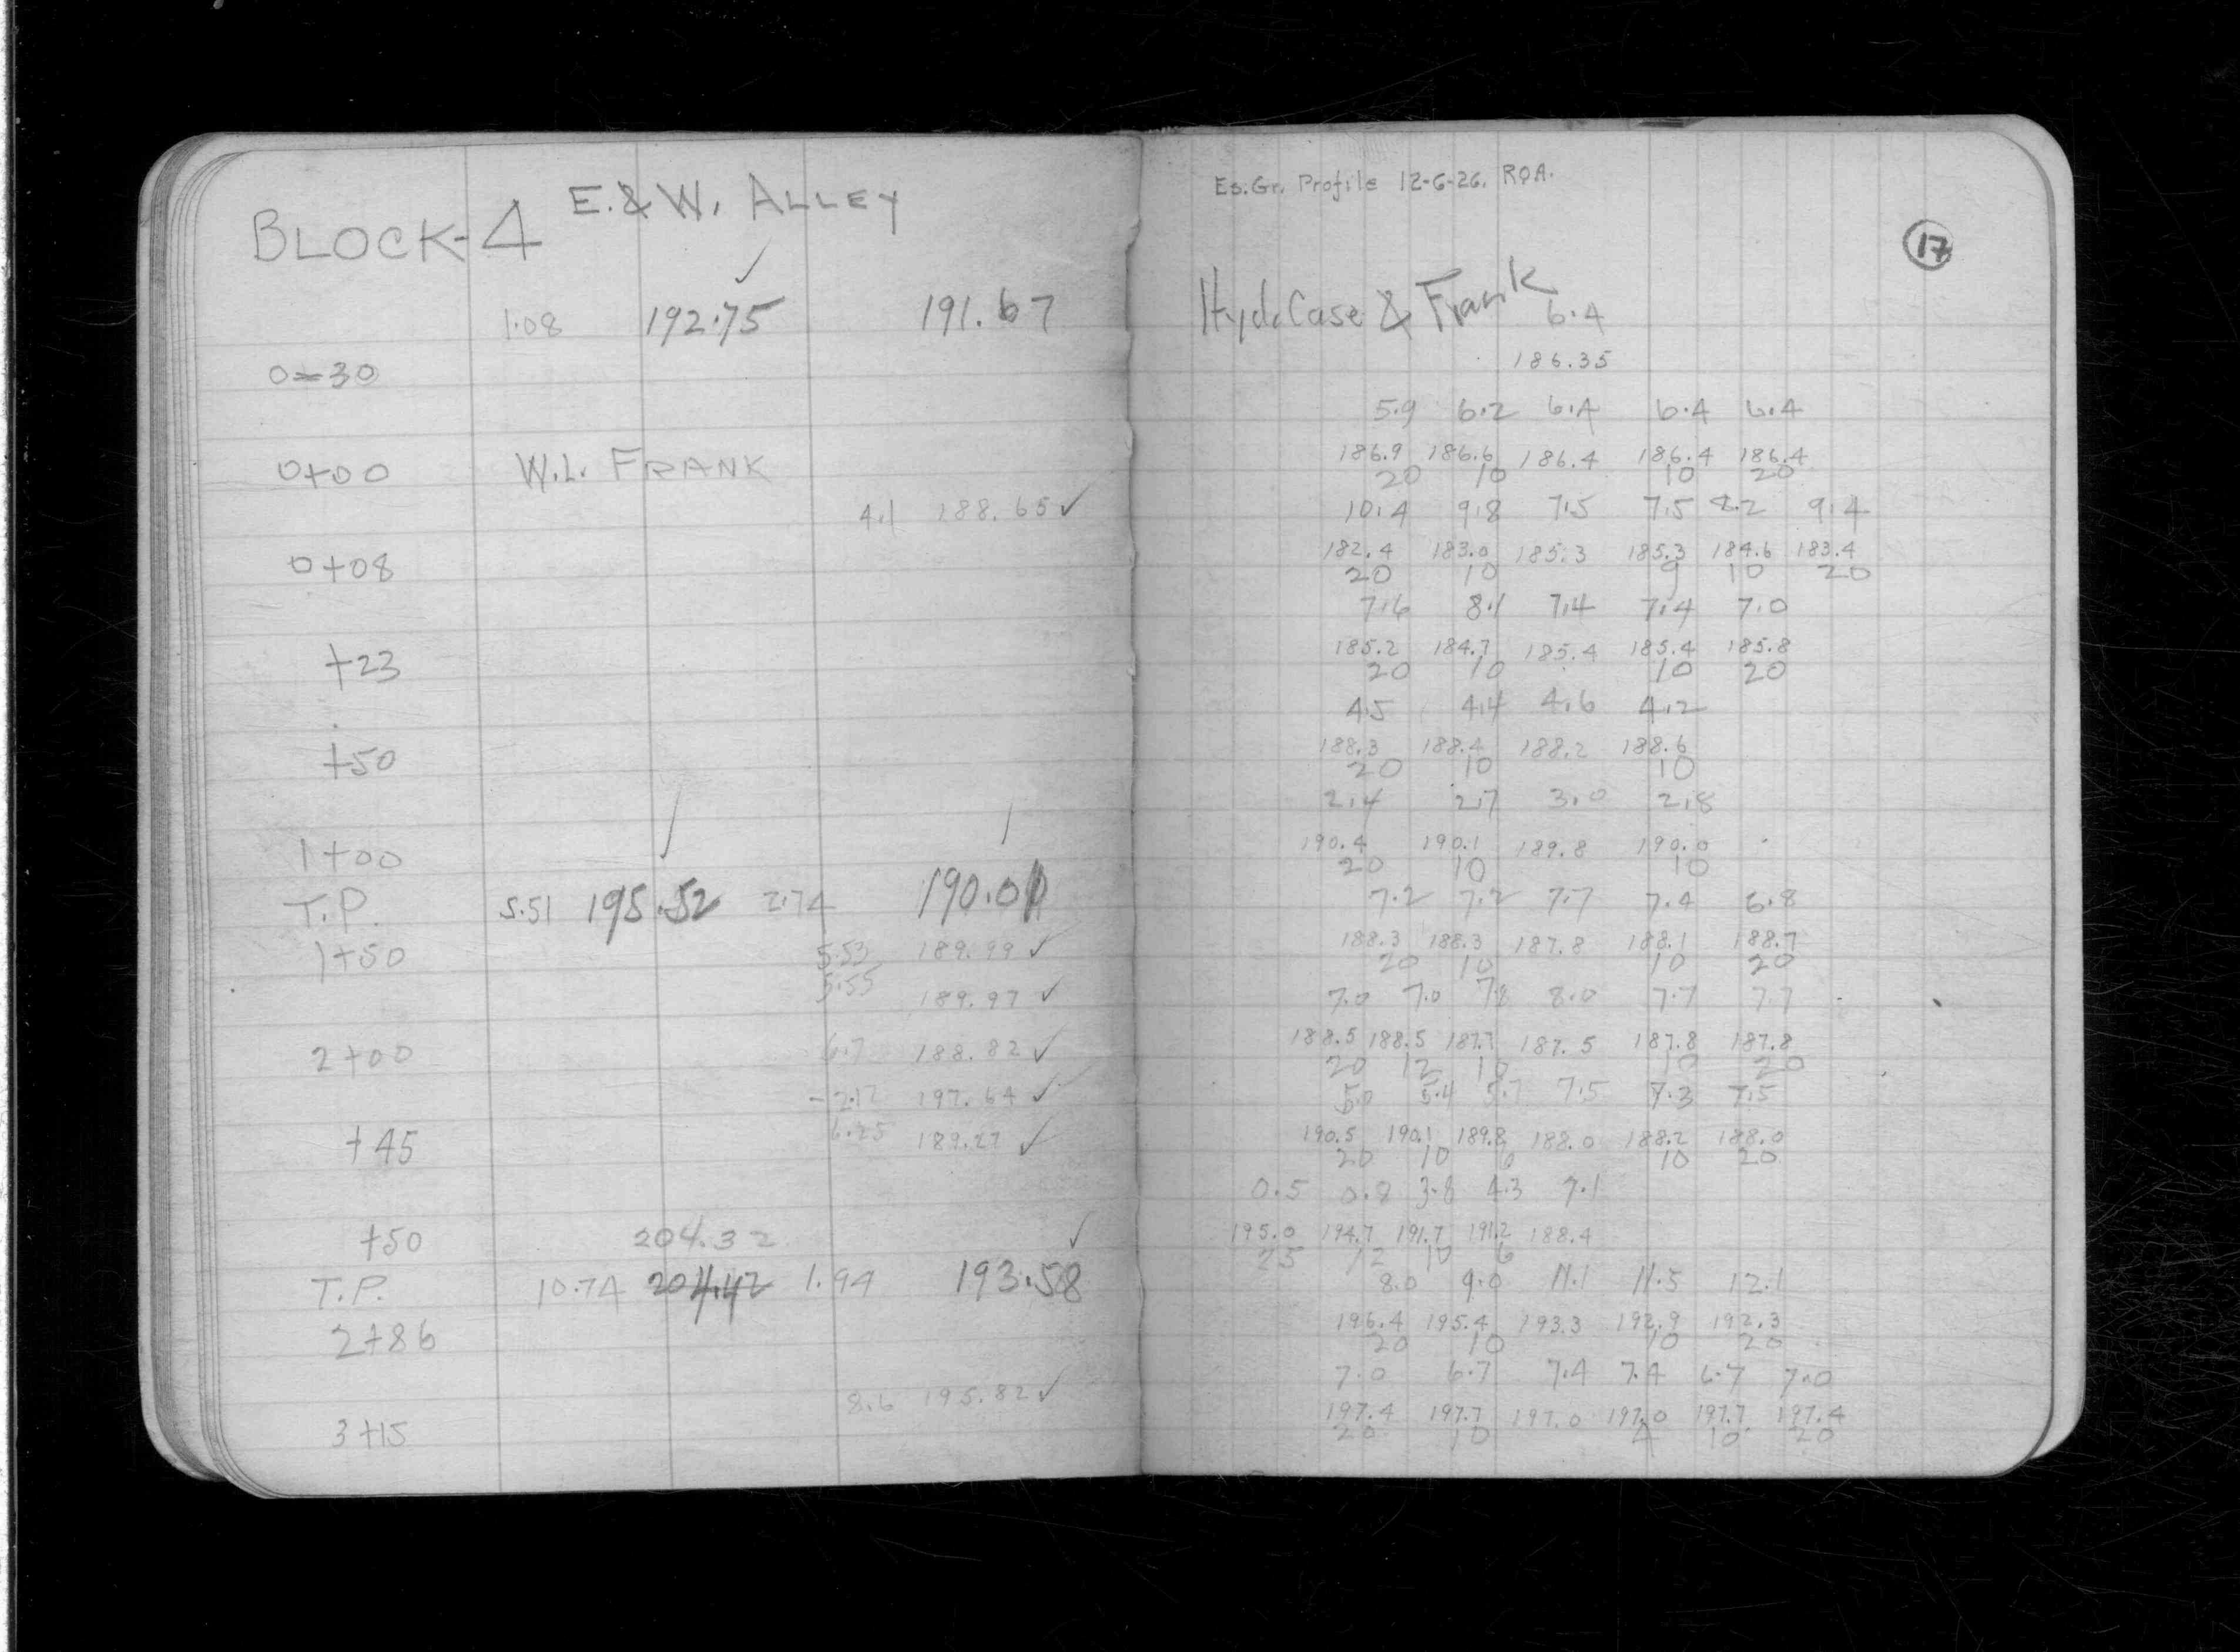 E. & W. ALLEY
BLOCK-4
1.08 192.75 191.67
0=30
0+00 W.L. FRANK
4.1 188.65 ✓
0+08
+23
+50
1+00
T.P. 5.51 195.52 2.74 190.01
1+50 5.53 189.99 ✓
5.55 189.97 ✓
2+00 6.7 188.82 ✓
-2.12 197.64 ✓
+45 6.25 189.27 ✓
+50 204.32
T.P. 10.74 204.42 1.94 193.58
2+86
8.6 195.82 ✓
3+15
Es. Gr. Profile 12-6-26. ROA.
17
Hyd. Case & Frank 6.4
186.35
5.9 6.2 6.4 6.4 6.4
186.9 186.6 186.4 186.4 186.4
20 10 10 20
10.4 9.8 7.5 7.5 8.2 9.4
182.4 183.0 185.3 185.3 184.6 183.4
20 10 9 10 20
7.6 8.1 7.4 7.4 7.0
185.2 184.7 185.4 185.4 185.8
20 10 10 20
4.5 4.4 4.6 4.2
188.3 188.4 188.2 188.6
20 10 10
2.4 2.7 3.0 2.8
190.4 190.1 189.8 190.0
20 10 10
7.2 7.2 7.7 7.4 6.8
188.3 188.3 187.8 188.1 188.7
20 10 10 20
7.0 7.0 7.8 8.0 7.7 7.7
188.5 188.5 187.7 187.5 187.8 187.8
20 12 10 10 20
5.0 5.4 5.7 7.5 7.3 7.5
190.5 190.1 189.8 188.0 188.2 188.0
20 10 6 10 20
0.5 0.8 3.8 4.3 7.1
195.0 194.7 191.7 191.2 188.4
25 12 10 6
8.0 9.0 11.1 11.5 12.1
196.4 195.4 193.3 192.9 192.3
20 10 10 20
7.0 6.7 7.4 7.4 6.7 7.0
197.4 197.7 197.0 197.0 197.7 197.4
20 10 4 10 20